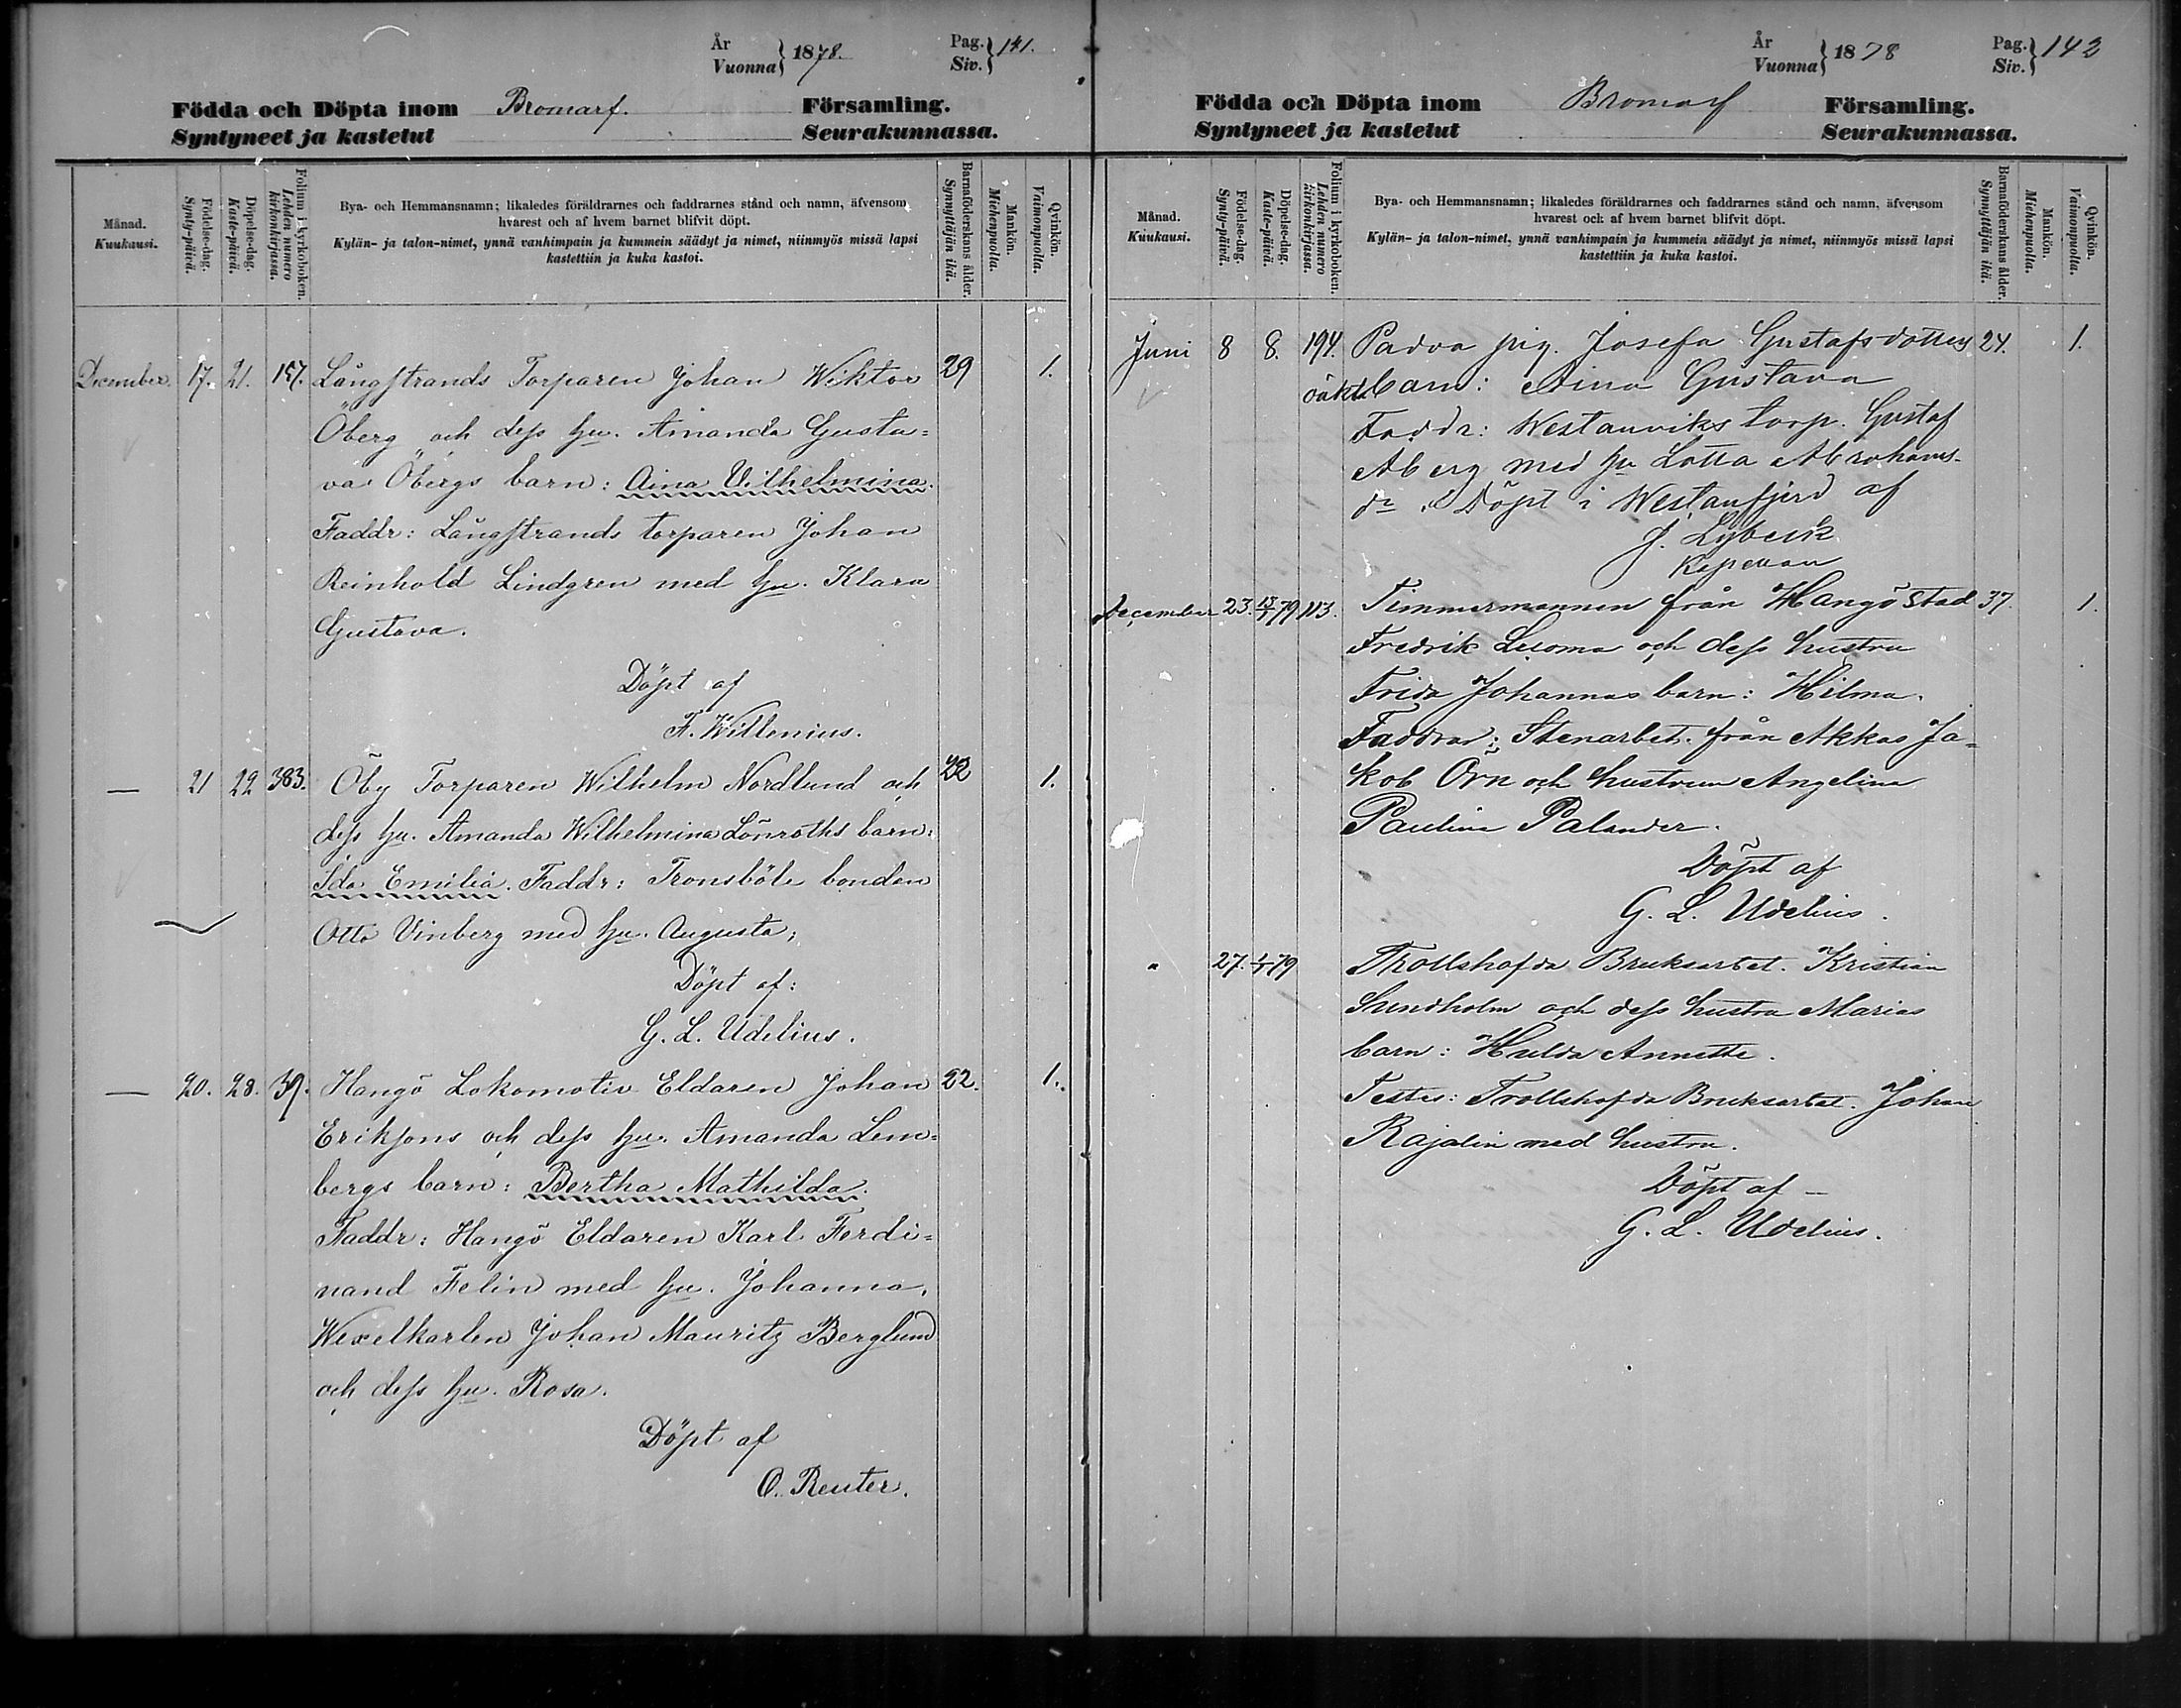 År
Vuonna } 1878.
Pag.
Siv. } 141.
Födda och Döpta inom Bromarf. Församling.
Syntyneet ja kastetut Seurakunnassa.
Månad.
Kuukausi.
Födelse-dag.
Synty-päivä.
Döpelse-dag.
Kaste-päivä.
Folium i kyrkoboken.
Lehden numero
kirkonkirjassa.
Bya- och Hemmansnamn; likaledes föräldrarnes och faddrarnes stånd och namn, äfvensom
hvarest och af hvem barnet blifvit döpt.
Kylän- ja talon-nimet, ynnä vanhimpain ja kummein säädyt ja nimet, niinmyös missä lapsi
kastettiin ja kuka kastoi.
Barnaföderskans ålder.
Synnyttäjän ikä.
Mankön.
Miehenpuolta.
Qvinkön.
Vaimonpuolta.
December. 17. 21. 157. Långstrands Torparen Johan Wiktor 29 1.
Öberg och dess hu. Amanda Gusta=
va Öbergs barn: Aina Vilhelmina.
Faddr: Långstrands torparen Johan
Reinhold Lindgren med hu. Klara
Gustava.
Döpt af
F. Willenius.
— 21 22 383. Öby Torparen Wilhelm Nordlund och 22 1.
dess hu. Amanda Wilhelmina Lönroths barn:
Ida Emilia. Faddr: Tronsböle bonden
Otto Vinberg med hu. Augusta;
Döpt af:
G. L. Udelius.
— 20. 28. 39. Hangö Lokomotiv Eldaren Johan 22. 1.
Eriksons och dess hu. Amanda Lem=
bergs barn: Bertha Mathilda.
Faddr: Hangö Eldaren Karl Ferdi=
nand Felin med hu. Johanna,
Wexelkarlen Johan Mauritz Berglund
och dess hu. Rosa.
Döpt af
O. Reuter.
År
Vuonna } 1878
Pag.
Siv. } 142
Födda och Döpta inom Bromarf Församling.
Syntyneet ja kastetut Seurakunnassa.
Månad.
Kuukausi.
Födelse-dag.
Synty-päivä.
Döpelse-dag.
Kaste-päivä.
Folium i kyrkoboken.
Lehden numero
kirkonkirjassa.
Bya- och Hemmansnamn; likaledes föräldrarnes och faddrarnes stånd och namn, äfvensom
hvarest och af hvem barnet blifvit döpt.
Kylän- ja talon-nimet, ynnä vanhimpain ja kummein säädyt ja nimet, niinmyös missä lapsi
kastettiin ja kuka kastoi.
Barnaföderskans ålder.
Synnyttäjän ikä.
Mankön.
Miehenpuolta.
Qvinkön.
Vaimonpuolta.
Juni 8 8. 194. Padva pig. Josefa Gustafsdotters 24. 1.
oäkta barn: Aina Gustava
Faddr: Westanviks torp. Gustaf
Åberg med hu Lotta Abrahams-
dr. Döpt i Westanfjerd af
J. Lybeck
Kapellan
December 23. 113. Timmermannen från Hangö stad 37. 1.
Fredrik Luoma och dess hustru
Frida Johannas barn: Hilma.
Faddrar: Stenarbet. från Akkas Ja-
kob Örn och hustrun Angelina
Paulina Palander.
Döpt af
G. L. Udelius.
" 27. 1/1 79 Trollshofda Bruksarbet. Kristian
Sundholm och dess hustru Marias
barn: Hulda Annette.
Testes: Trollshofda Bruksarbet. Johan
Rajalin med hustru.
Döpt af —
G. L. Udelius.